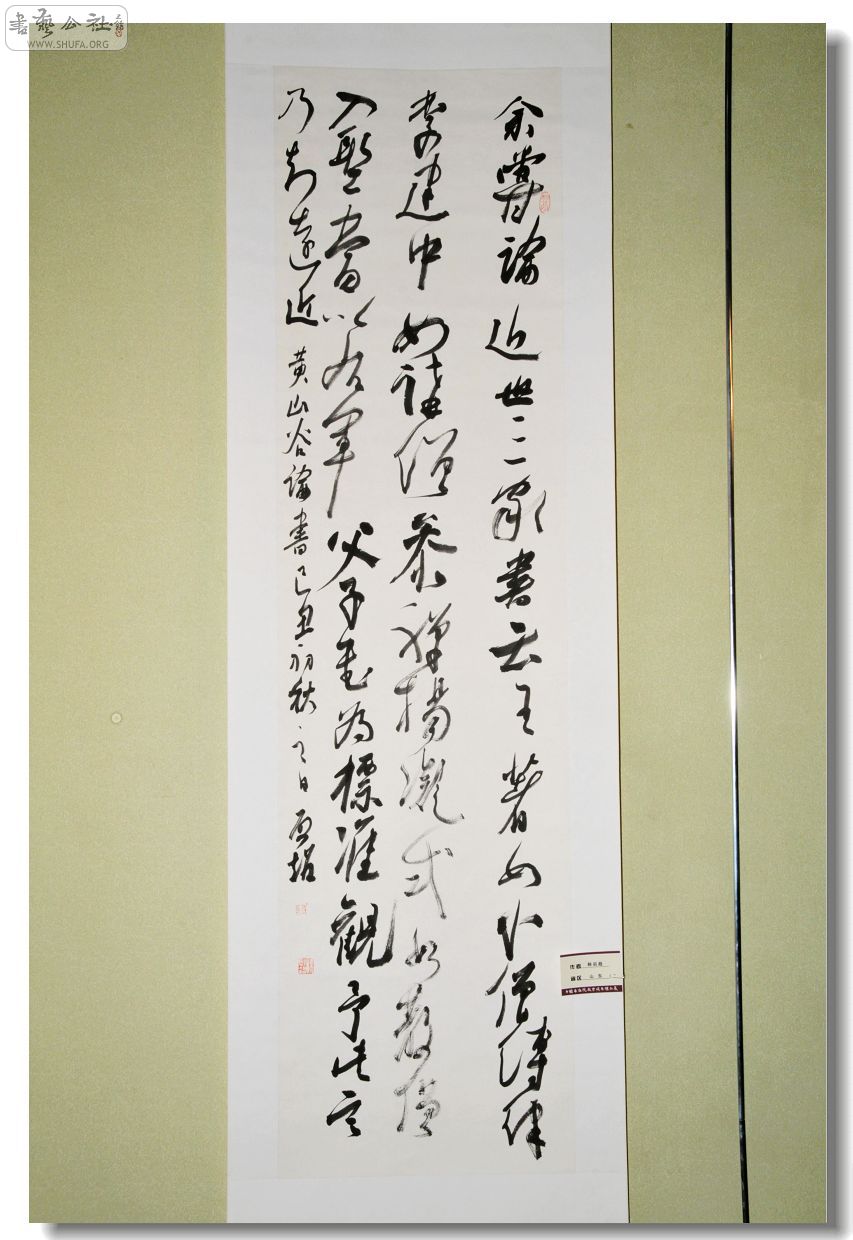 書藝公社
WWW.SHUFA.ORG
余嘗論近世三家書云王著如小僧縛律
李建中如講僧參禪楊凝式如散僧
入聖當以右軍父子書為標準觀予此言
乃知遠近
黃山谷論書己丑初秋之日
作者
山东